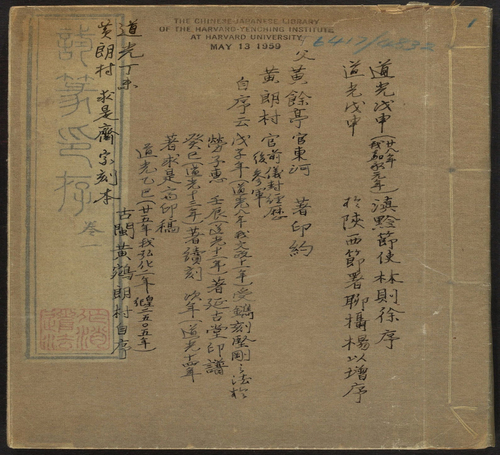 THE CHINESE-JAPANESE LIBRARY
OF THE HARVARD-YENCHING INSTITUTE
AT HARVARD UNIVERSITY
MAY 13 1959
道光戊申(廿八年 我嘉永元年)滇黔節使林則徐序
道光戊申 於陝西節署聊攝楊以增序
父黃餘亭 官東河 著印約
黃朗村 官前儀封經歷 後參軍
自序云 戊子年(道光八年我文政十一年)受鶴刻堅剛之法於
勞子惠 壬辰(道光十二年)著延古堂印譜
癸巳(道光十三年)著續刻 次年 道光十四年
著求是齋印稿
道光乙巳(廿五年我弘化二年 紀皇二五〇五年)
古閩黃鶴朗村自序
道光丁未
黃朗村 求是齋家刻本
篆印存 卷一